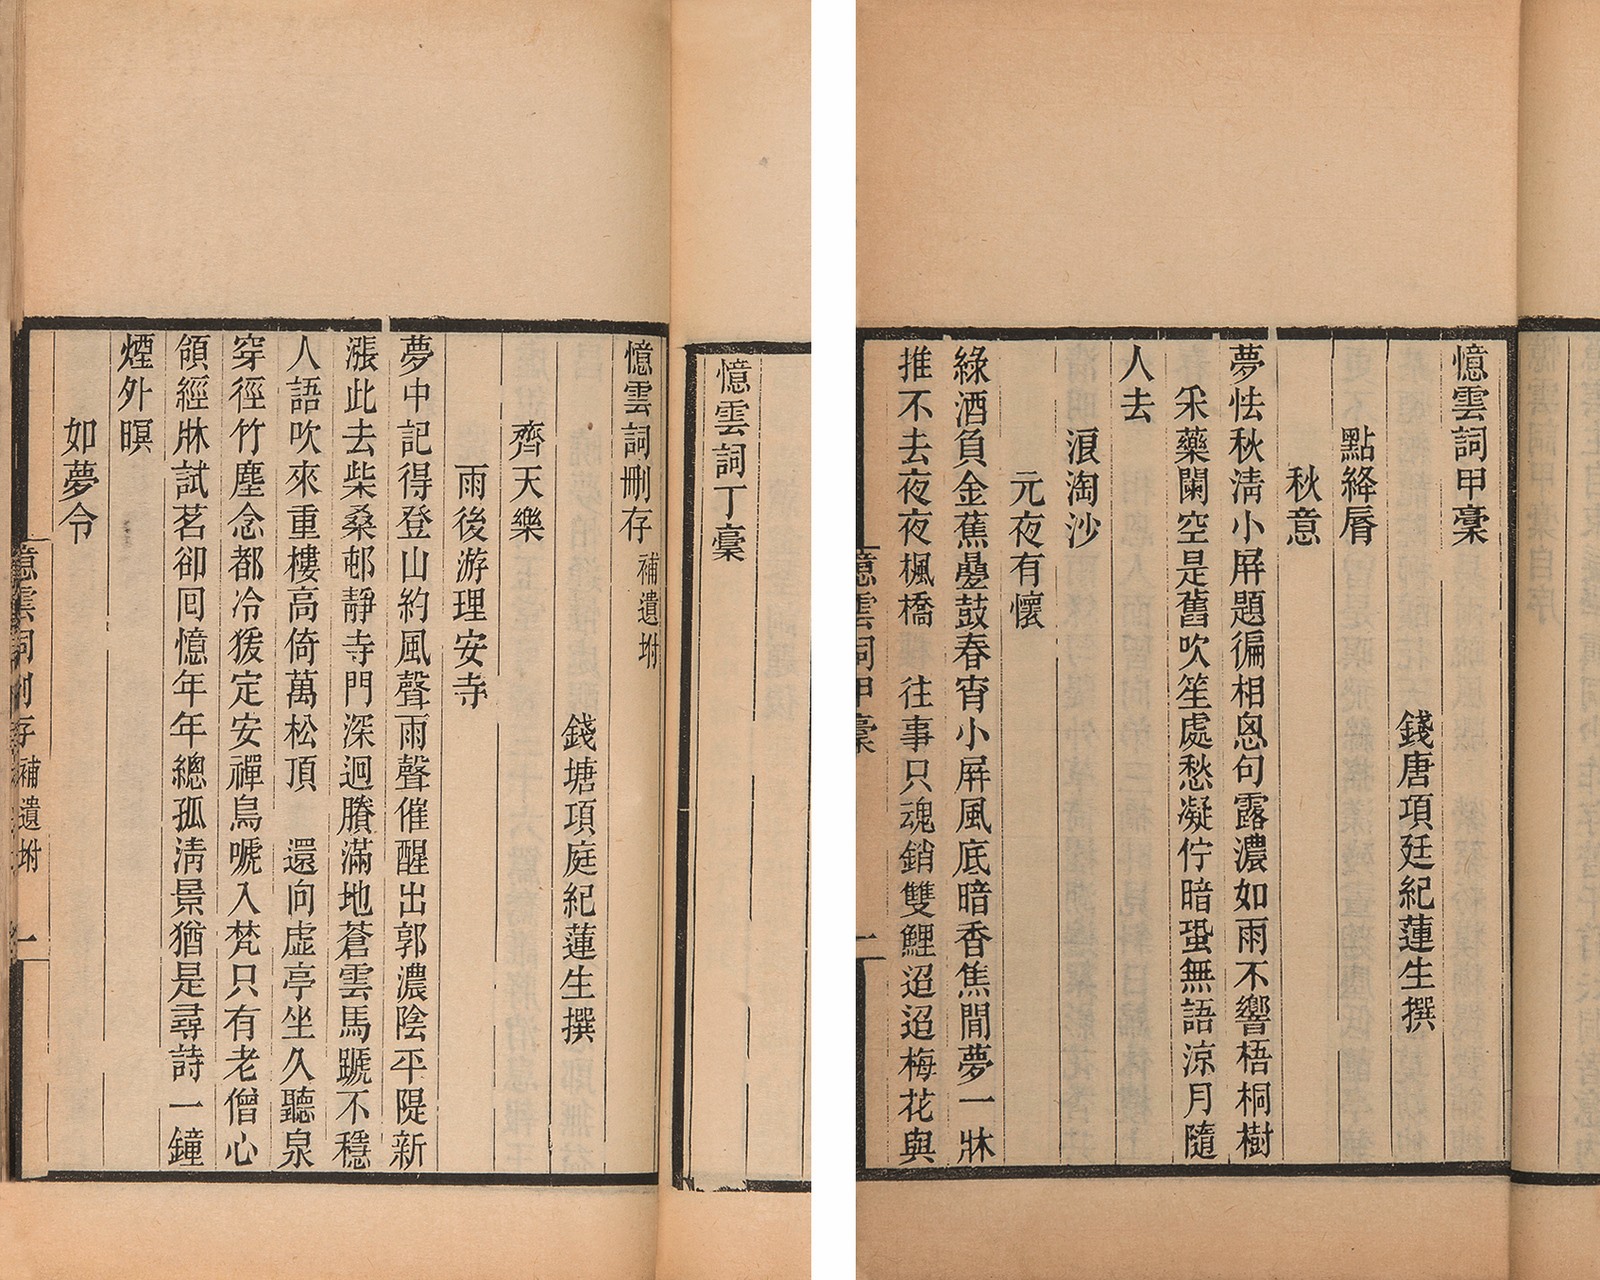 憶雲詞甲稾
錢唐項廷紀蓮生撰
點絳脣
秋意
夢怯秋淸小屛題徧相思句露濃如雨不響梧桐樹
采藥闌空是舊吹笙處愁凝佇暗蛩無語涼月隨
人去
浪淘沙
元夜有懷
綠酒負金蕉疊鼓春宵小屛風底暗香焦閒夢一牀
推不去夜夜楓橋　往事只魂銷雙鯉迢迢梅花與
憶雲詞甲稾
一
憶雲詞丁稾
憶雲詞刪存 補遺坿
錢塘項庭紀蓮生撰
齊天樂
雨後游理安寺
夢中記得登山約風聲雨聲催醒出郭濃陰平隄新
漲此去柴桑邨靜寺門深迥賸滿地蒼雲馬蹏不穩
人語吹來重樓高倚萬松頂　還向虛亭坐久聽泉
穿徑竹塵念都冷猨定安禪鳥嗁入梵只有老僧心
領經牀試茗卻回憶年年總孤淸景猶是尋詩一鐘
煙外暝
如夢令
憶雲詞刪存 補遺坿
一